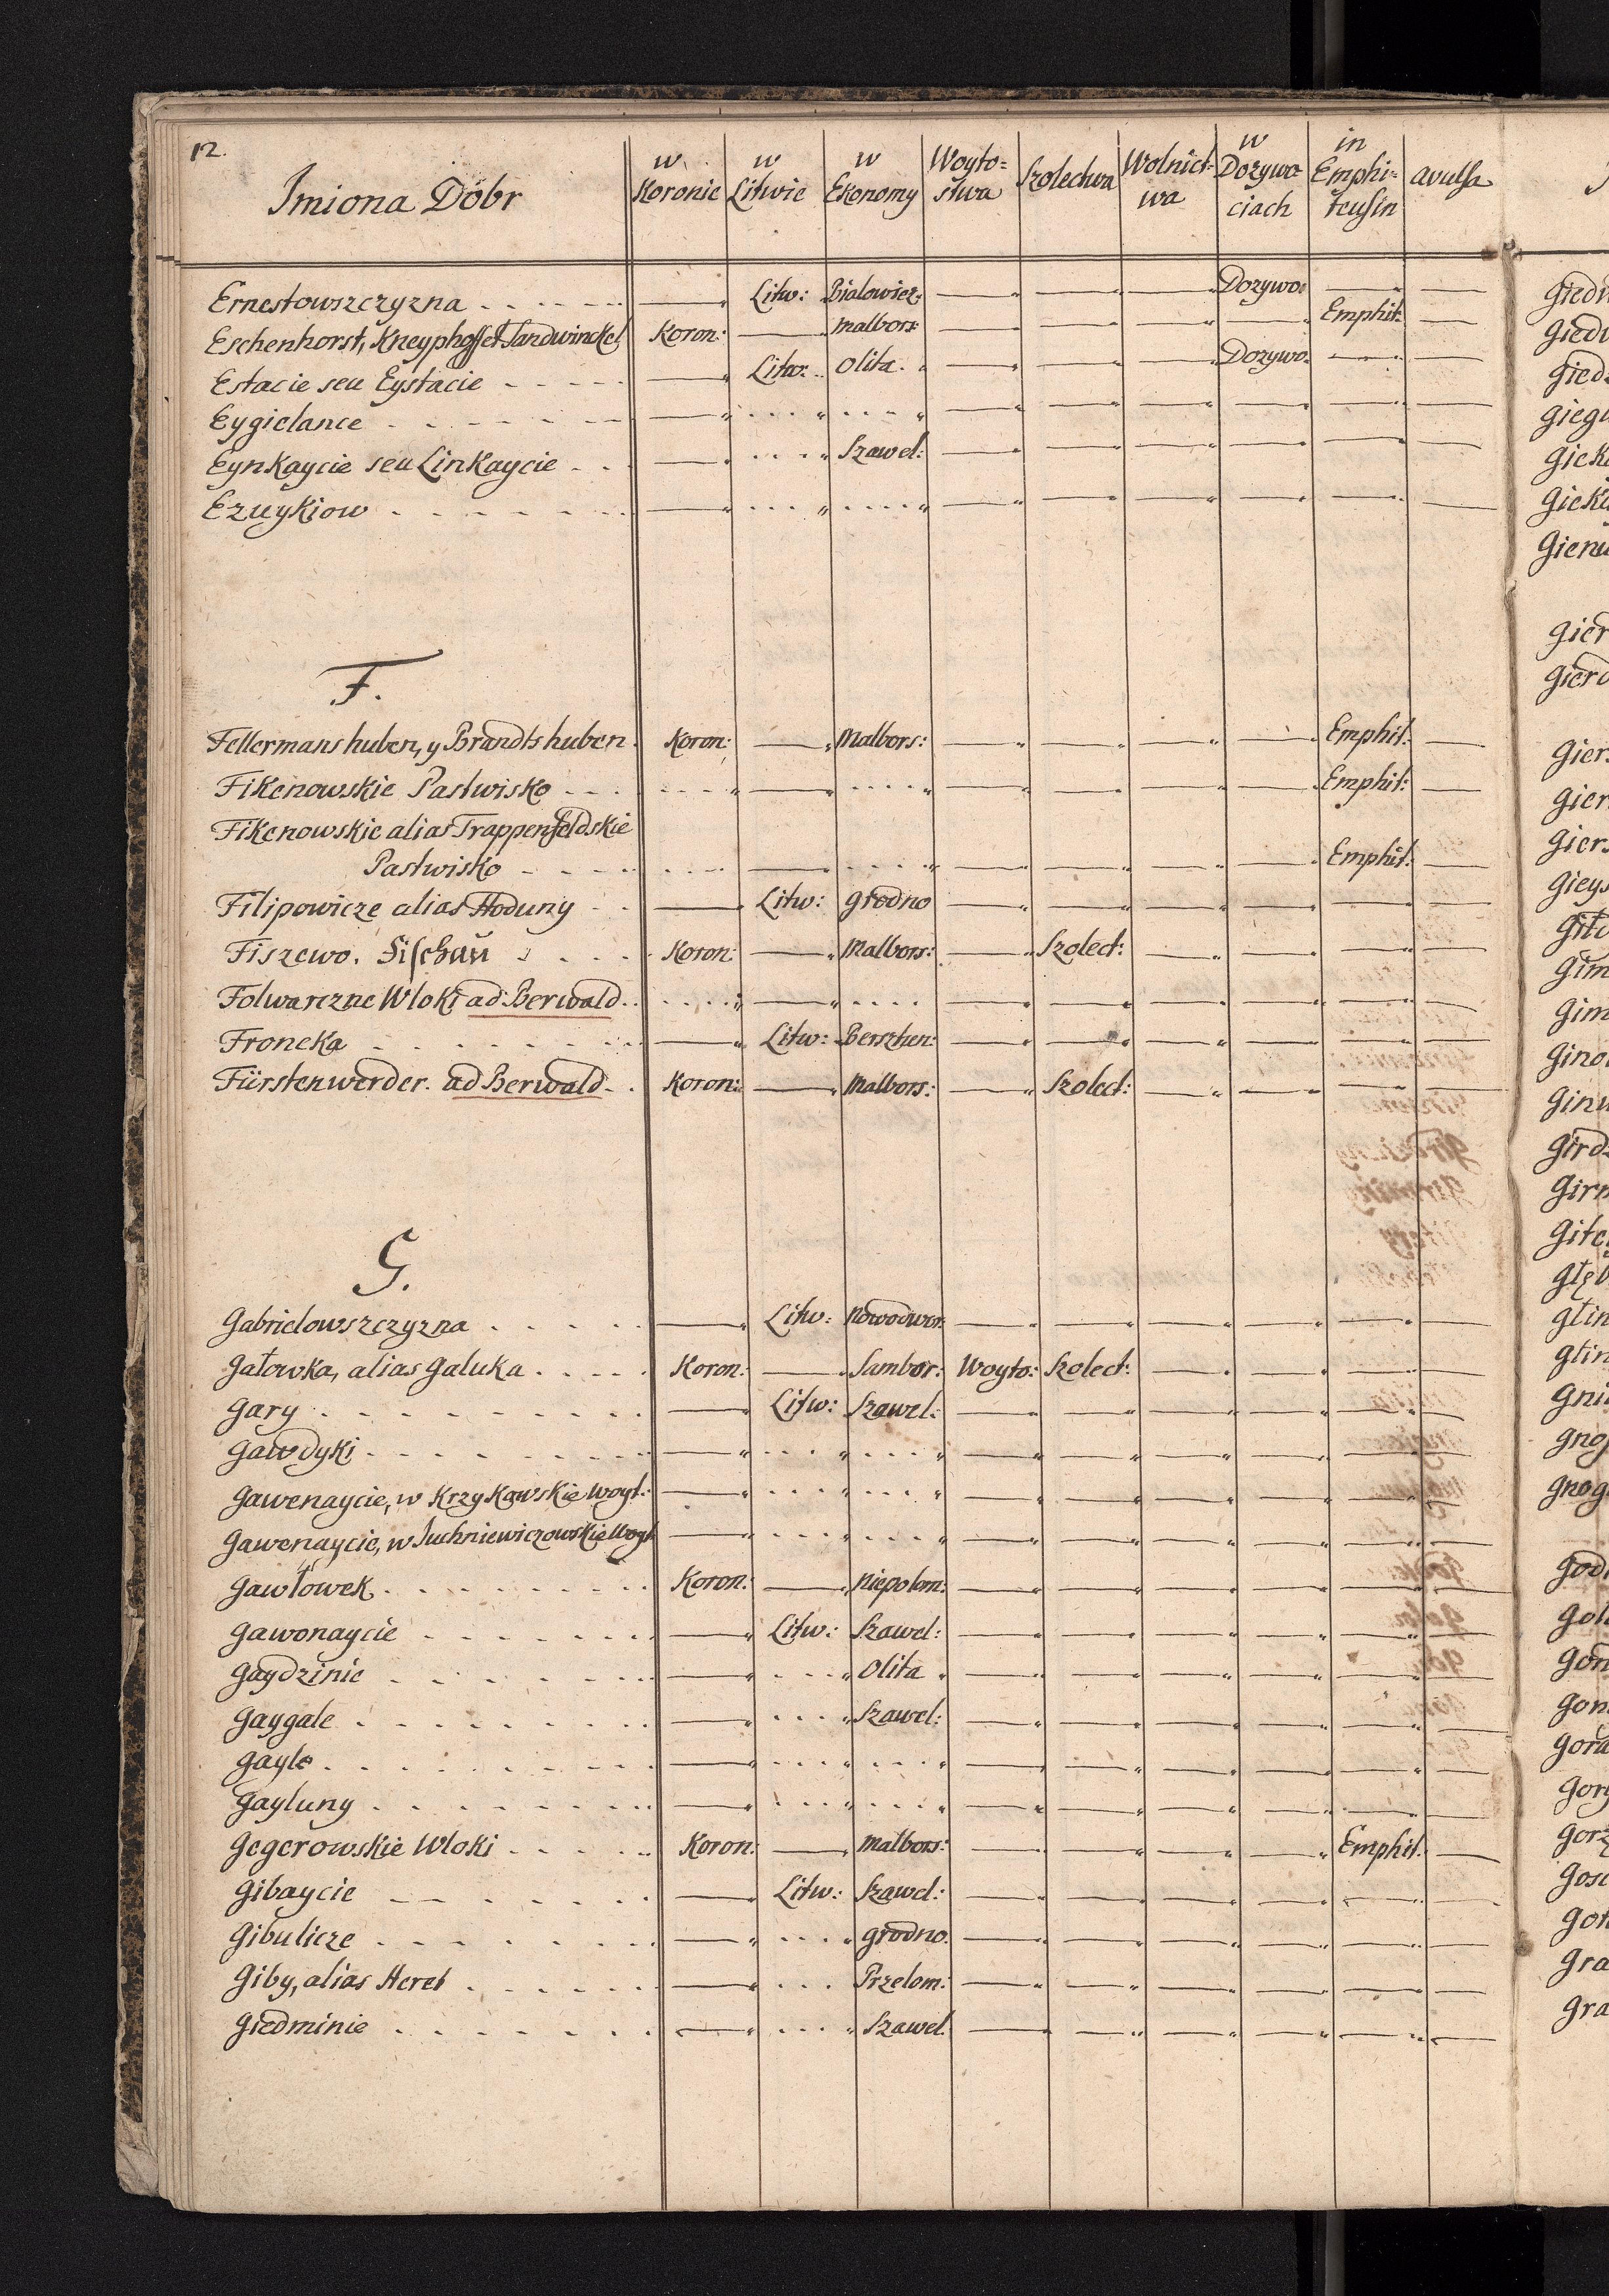 12.
Imiona Dóbr | w Koronie | w Litwie | w Ekonomy | Woyto=stwa | Szolectwa | Wolnict=wa | w Dozywo=ciach | in Emphi=teusin | avulsa
Ernestowszczyzna | — | Litw: | Bialowiez: | — | — | — | Dozywo: | — | —
Eschenhorst, Kneyphoff et Sandwinckel | Koron: | — | Malbors: | — | — | — | — | Emphit: | —
Estacie seu Eystacie | — | Litw: | Olita. | — | — | — | Dozywo: | — | —
Eygielance | — | .... | .... | — | — | — | — | — | —
Eynkaycie seu Linkaycie | — | .... | Szawel: | — | — | — | — | — | —
Ezuykiow | — | .... | .... | — | — | — | — | — | —
F.
Fellermanshuben, y Brandtshuben | Koron: | — | Malbors: | — | — | — | — | Emphit: | —
Fikenowskie Pastwisko | .... | — | .... | — | — | — | — | Emphit: | —
Fikenowskie alias Trappenfeldskie
Pastwisko | .... | — | .... | — | — | — | — | Emphit: | —
Filipowicze alias Hoduny | — | Litw: | Grodno | — | — | — | — | — | —
Fiszewo. Fischau | Koron: | — | Malbors: | — | Szolect: | — | — | — | —
Folwarczne Wloki ad Berwald | .... | — | .... | — | — | — | — | — | —
Froncka | — | Litw: | Bersthen: | — | — | — | — | — | —
Fürstenwerder. ad Berwald | Koron: | — | Malbors: | — | Szolect: | — | — | — | —
G.
Gabrielowszczyzna | — | Litw: | Nowodwor: | — | — | — | — | — | —
Gałowka, alias Galuka | Koron: | — | Sambor: | Woyto: | Szolect: | — | — | — | —
Gary | — | Litw: | Szawel: | — | — | — | — | — | —
Gawdyki | — | .... | .... | — | — | — | — | — | —
Gawenaycie, w Krzykowskie Woyt: | — | .... | .... | — | — | — | — | — | —
Gawenaycie, w Juchniewiczowskie Woyt | — | .... | .... | — | — | — | — | — | —
Gawłowek | Koron: | — | Niepolom: | — | — | — | — | — | —
Gawonaycie | — | Litw: | Szawel: | — | — | — | — | — | —
Gaydzinie | — | .... | Olita | — | — | — | — | — | —
Gaygale | — | .... | Szawel: | — | — | — | — | — | —
Gayle | — | .... | .... | — | — | — | — | — | —
Gayluny | — | .... | .... | — | — | — | — | — | —
Gegerowskie Wloki | Koron: | — | Malbors: | — | — | — | — | Emphit: | —
Gibaycie | — | Litw: | Szawel: | — | — | — | — | — | —
Gibulicze | — | .... | Grodno. | — | — | — | — | — | —
Giby, alias Heret | — | ... | Przelom: | — | — | — | — | — | —
Giedminie | — | .... | Szawel. | — | — | — | — | — | —